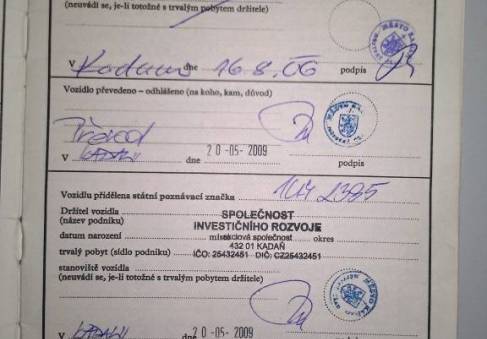 (neuvádí se, je-li totožné s trvalým pobytem držitele)
V Kadani dne 16.8.06 podpis
Vozidlo převedeno – odhlášeno (na koho, kam, důvod)
Převod
V KADANI dne 20-05-2009 podpis
Vozidlu přidělena státní poznávací značka 1U4 2385
Držitel vozidla SPOLEČNOST
(název podniku) INVESTIČNÍHO ROZVOJE
datum narození akciová společnost okres
432 01 KADAŇ
trvalý pobyt (sídlo podniku) IČO: 25432451 DIČ: CZ25432451
stanoviště vozidla
(neuvádí se, je-li totožné s trvalým pobytem držitele)
V KADANI dne 20-05-2009